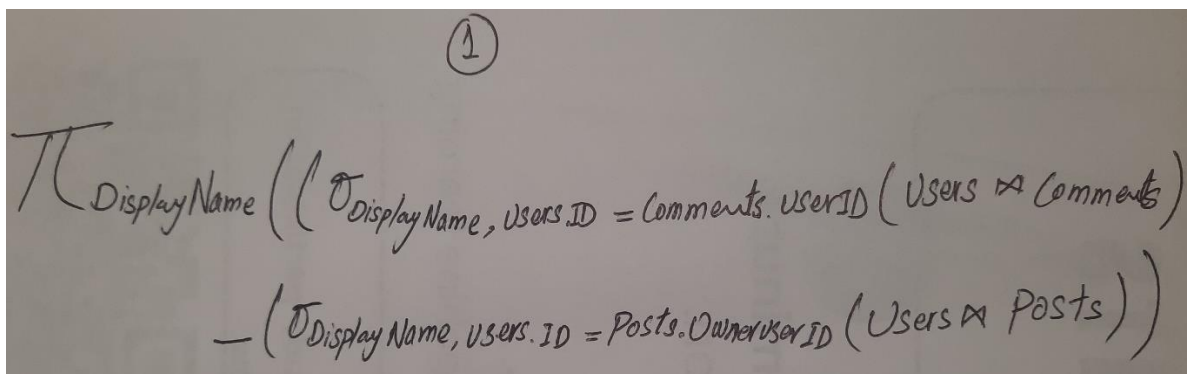 1
π DisplayName ( ( σ DisplayName, Users.ID = Comments.UserID ( Users ⋈ Comments )
— ( σ DisplayName, Users.ID = Posts.OwnerUserID ( Users ⋈ Posts ) )